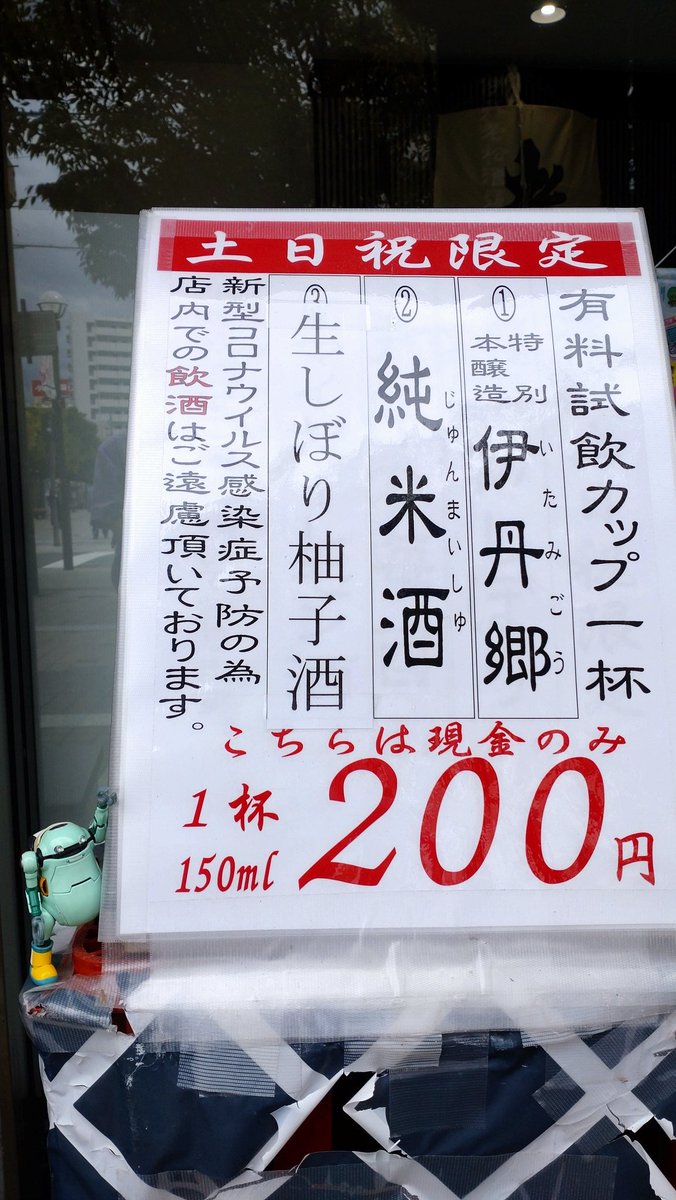 土日祝限定
有料試飲カップ一杯
① 特別本醸造 伊丹郷
いたみごう
② 純米酒
じゅんまいしゅ
③ 生しぼり柚子酒
新型コロナウイルス感染症予防の為
店内での飲酒はご遠慮頂いております。
こちらは現金のみ
1杯
150ml
200円